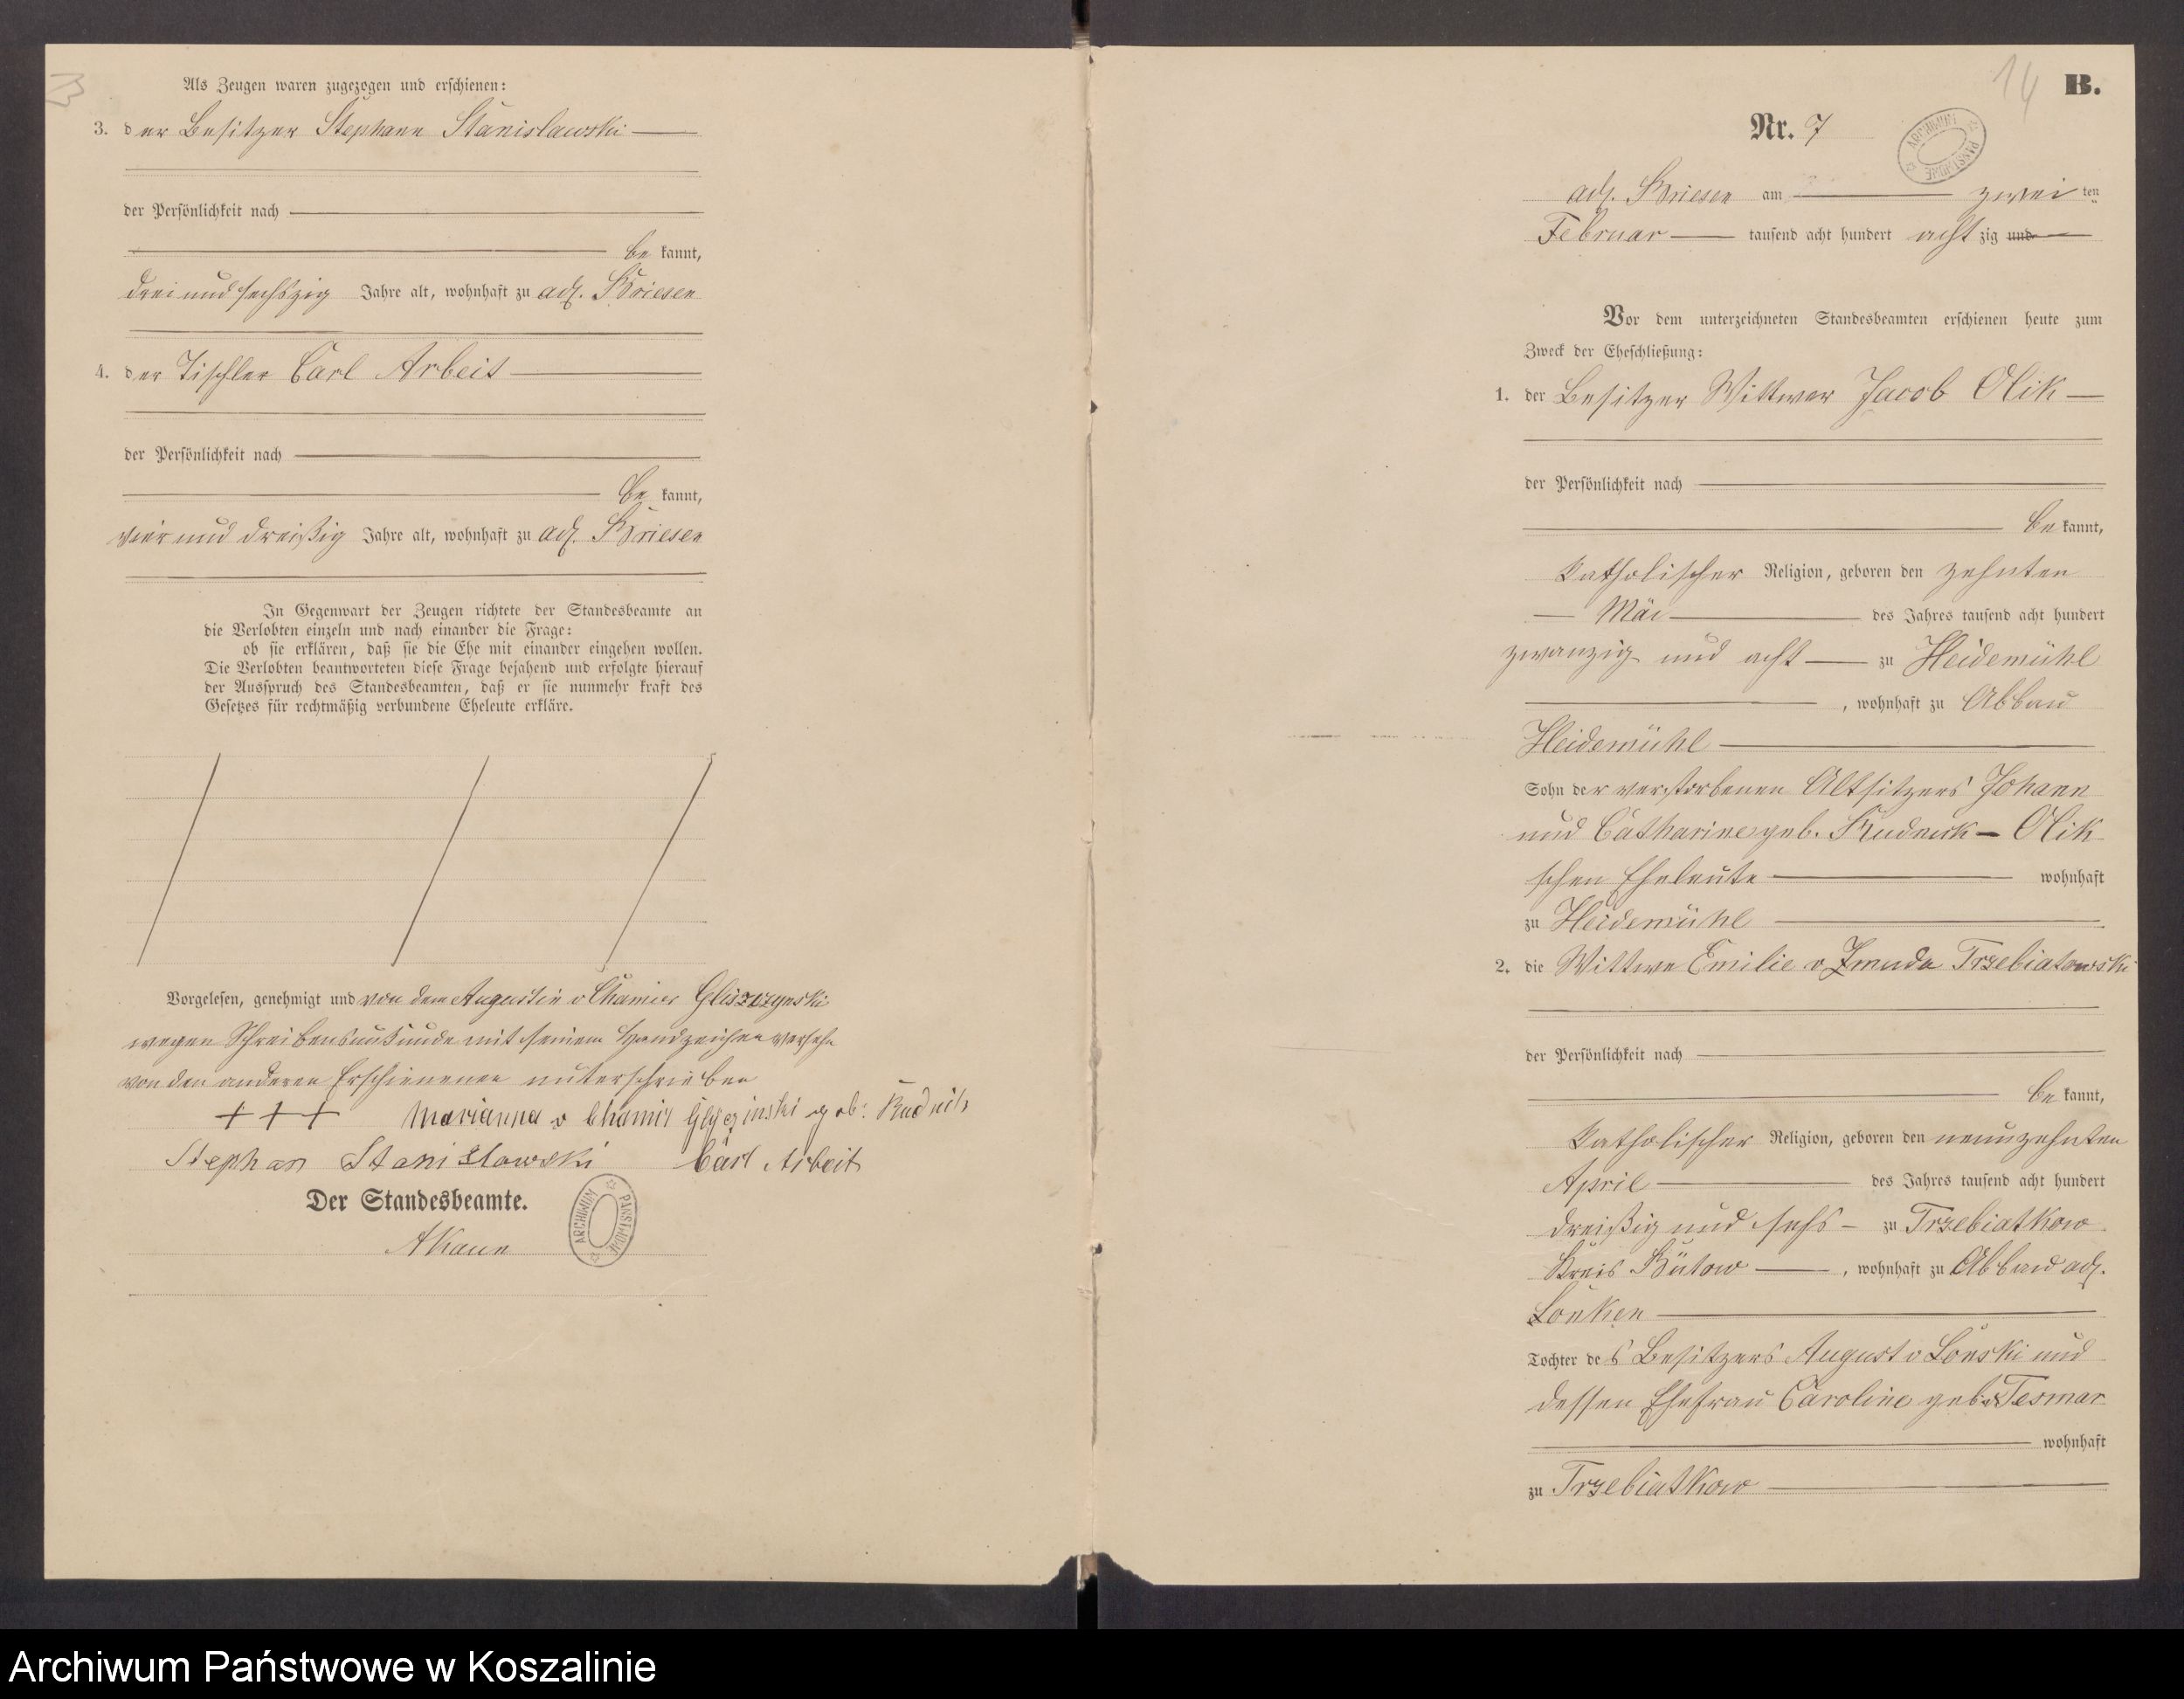 Als Zeugen waren zugezogen und erschienen:
3. der Besitzer Stephann Stanislawski
der Persönlichkeit nach
be kannt,
drei und sechszig Jahre alt, wohnhaft zu adl. Briesen
4. der Tischler Carl Arbeit
der Persönlichkeit nach
be kannt,
vier und dreißig Jahre alt, wohnhaft zu adl. Briesen
In Gegenwart der Zeugen richtete der Standesbeamte an
die Verlobten einzeln und nach einander die Frage:
ob sie erklären, daß sie die Ehe mit einander eingehen wollen.
Die Verlobten beantworteten diese Frage bejahend und erfolgte hierauf
der Ausspruch des Standesbeamten, daß er sie nunmehr kraft des
Gesetzes für rechtmäßig verbundene Eheleute erkläre.
Vorgelesen, genehmigt und von dem Augustin v Chamier Gliszczynski
wegen Schreibensunkunde mit seinem Handzeichen versehn
von den anderen Erschienenen unterschrieben
+ + + Marianna v Chamir geb:
Stephan Stanislawski Carl Arbeit
Der Standesbeamte.
ARCHIWUM PAŃSTWOWE
14
B.
Nr. 7
ARCHIWUM PAŃSTWOWE
adl. Briesen am zwei ten
Februar tausend acht hundert acht zig und
Vor dem unterzeichneten Standesbeamten erschienen heute zum
Zweck der Eheschließung:
1. der Besitzer Wittwer Jacob Olik
der Persönlichkeit nach
be kannt,
katholischer Religion, geboren den zehnten
Mai des Jahres tausend acht hundert
zwanzig und acht zu Heidemühl
, wohnhaft zu Abbau
Heidemühl
Sohn der verstorbenen Altsitzers Johann
und Catharine geb. Olik
schen Eheleute wohnhaft
zu Heidemühl
2. die Wittwe Emilie v Zmuda Trzebiatowski
der Persönlichkeit nach
be kannt,
katholischer Religion, geboren den neunzehnten
April des Jahres tausend acht hundert
dreißig und sechs zu Trzebiatkow
Kreis Bütow , wohnhaft zu Abbau adl.
Lonken
Tochter des Besitzers August v Lonski und
dessen Ehefrau Caroline geb. v Tesmar
wohnhaft
zu Trzebiatkow
Archiwum Państwowe w Koszalinie